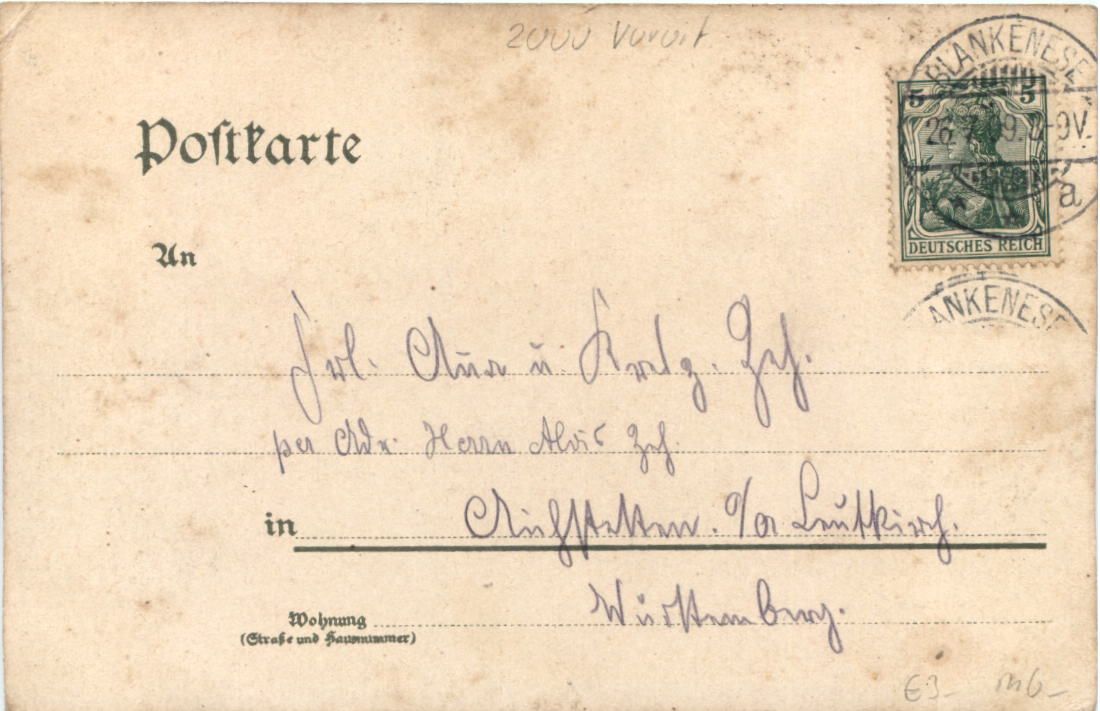 2000 Vorort
BLANKENESE
5 5
26. 9 -9V.
a
DEUTSCHES REICH
ANKENESE
Postkarte
An
Frl. u. Zeh.
per Adr. Herrn Alois Zeh.
in Aichstetten. O/A Leutkirch.
Württemberg.
Wohnung
(Straße und Hausnummer)
€3-